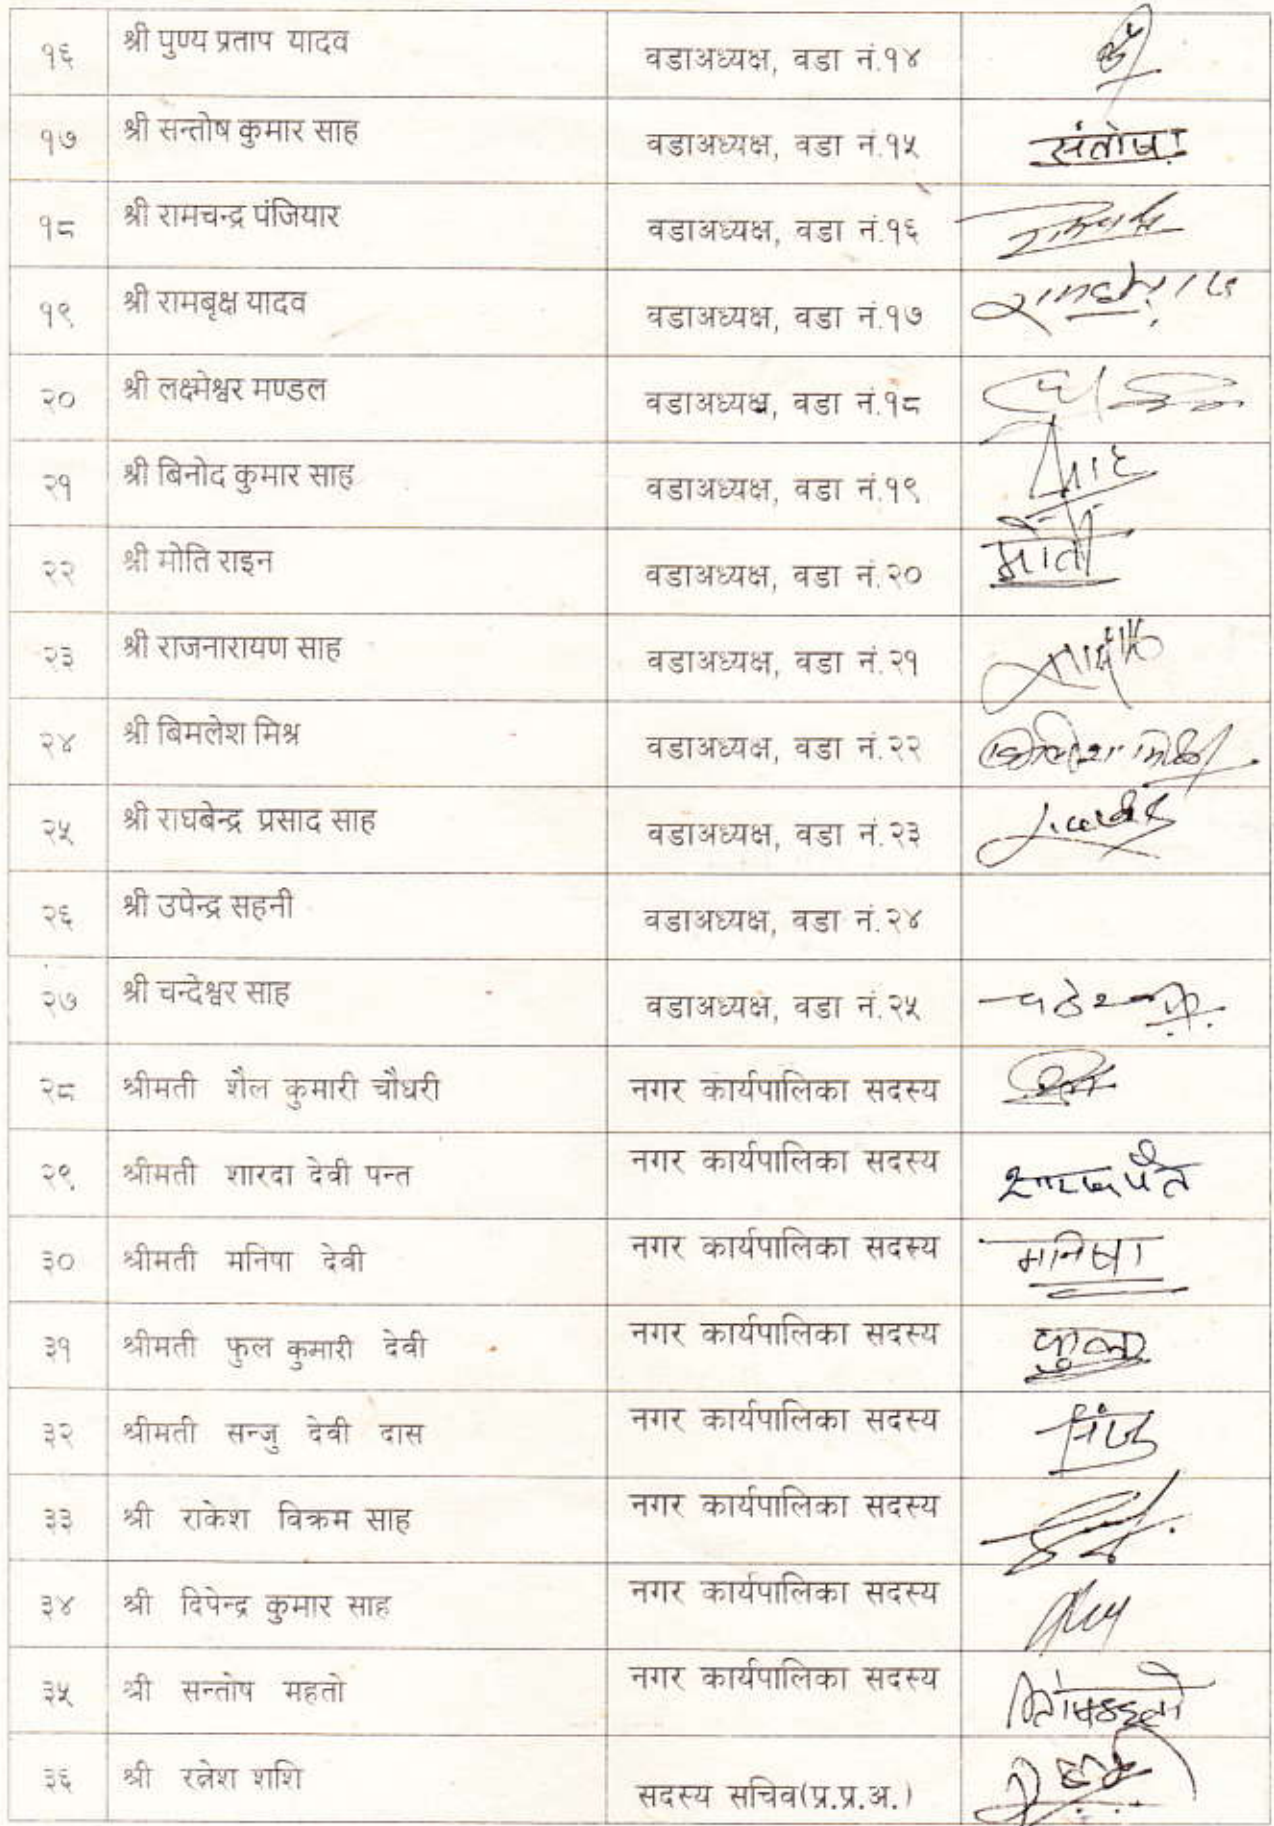 १६ श्री पुण्य प्रताप यादव वडाअध्यक्ष, वडा नं.१४
१७ श्री सन्तोष कुमार साह वडाअध्यक्ष, वडा नं.१५ संतोष
१८ श्री रामचन्द्र पंजियार वडाअध्यक्ष, वडा नं.१६
१९ श्री रामबृक्ष यादव वडाअध्यक्ष, वडा नं.१७
२० श्री लक्ष्मेश्वर मण्डल वडाअध्यक्ष, वडा नं.१८
२१ श्री बिनोद कुमार साह वडाअध्यक्ष, वडा नं.१९
२२ श्री मोति राइन वडाअध्यक्ष, वडा नं.२० मोती
२३ श्री राजनारायण साह वडाअध्यक्ष, वडा नं.२१
२४ श्री बिमलेश मिश्र वडाअध्यक्ष, वडा नं.२२
२५ श्री राघबेन्द्र प्रसाद साह वडाअध्यक्ष, वडा नं.२३
२६ श्री उपेन्द्र सहनी वडाअध्यक्ष, वडा नं.२४
२७ श्री चन्देश्वर साह वडाअध्यक्ष, वडा नं.२५
२८ श्रीमती शैल कुमारी चौधरी नगर कार्यपालिका सदस्य
२९ श्रीमती शारदा देवी पन्त नगर कार्यपालिका सदस्य
३० श्रीमती मनिषा देवी नगर कार्यपालिका सदस्य मनिषा
३१ श्रीमती फुल कुमारी देवी नगर कार्यपालिका सदस्य
३२ श्रीमती सन्जु देवी दास नगर कार्यपालिका सदस्य
३३ श्री राकेश विक्रम साह नगर कार्यपालिका सदस्य
३४ श्री दिपेन्द्र कुमार साह नगर कार्यपालिका सदस्य
३५ श्री सन्तोष महतो नगर कार्यपालिका सदस्य
३६ श्री रत्नेश शशि सदस्य सचिव(प्र.प्र.अ.)